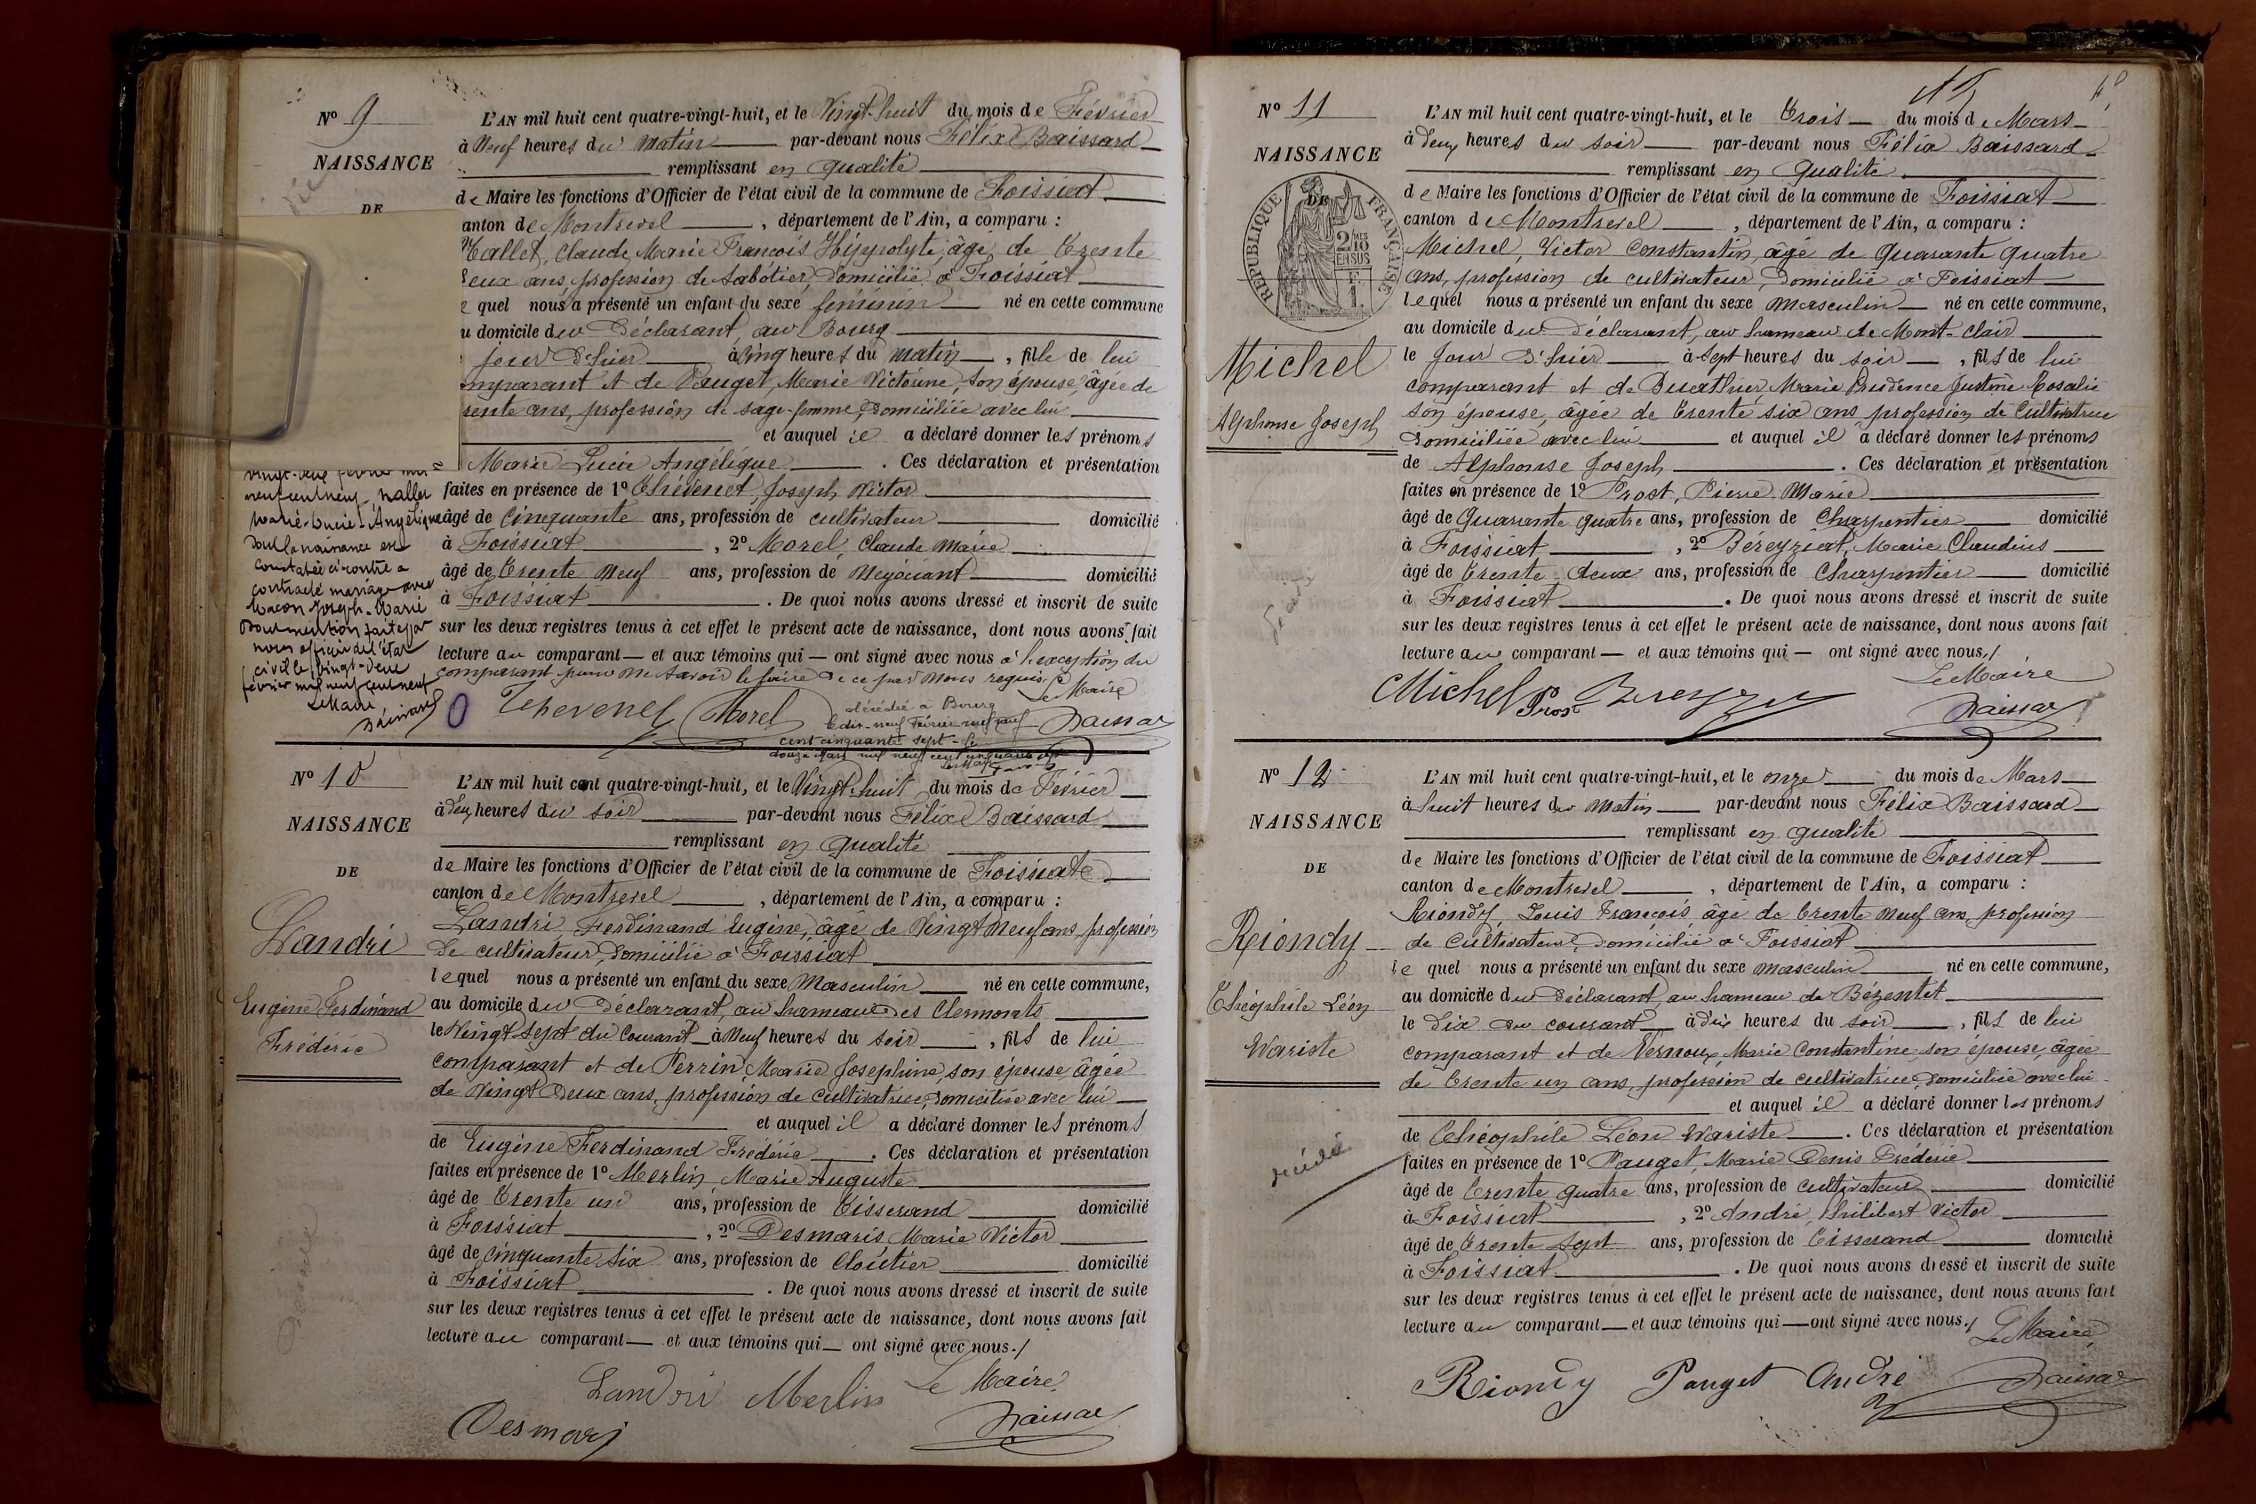 Nº 9
NAISSANCE
DE
L'AN mil huit cent quatre-vingt-huit, et le Vingt-huit du mois de Février
à Neuf heures du matin par-devant nous Félix Baissard
remplissant en qualité
de Maire les fonctions d'Officier de l'état civil de la commune de Foissiat
anton de Montrevel, département de l'Ain, a comparu :
Mallet, Claude Marie François Hippolyte, âgé de trente
eux ans, profession de sabotier, domicilié à Foissiat
e quel nous a présenté un enfant du sexe féminin né en cette commune
u domicile du déclarant, au Bourg
jour d'hier à cinq heures du matin, fille de lui
mparant et de Pauget, Marie Victorine, son épouse, âgée de
rente ans, profession de sage-femme, domiciliée avec lui
et auquel il a déclaré donner les prénoms
Marie Lucie Angélique. Ces déclaration et présentation
faites en présence de 1º Thévenet, Joseph Victor
âgé de Cinquante ans, profession de cultivateur domicilié
à Foissiat, 2º Morel, Claude Marie
âgé de trente Neuf ans, profession de Négociant domicilié
à Foissiat. De quoi nous avons dressé et inscrit de suite
sur les deux registres tenus à cet effet le présent acte de naissance, dont nous avons fait
lecture au comparant — et aux témoins qui — ont signé avec nous à l'exception du
comparant pour ne savoir le faire de ce par nous requis. Le Maire
vingt-deux février mil
neuf cent neuf Mallet
Marie-Lucie-Angélique
dont la naissance est
constatée ci-contre a
contracté mariage avec
Macon Joseph-Marie
Dont mention faite par
nous officier de l'état
civil le vingt-deux
février mil neuf cent neuf
Le Maire
Thevenet Morel
décédée à Bourg
le dix-neuf Février mil neuf
cent cinquante sept - le
douze Mars mil neuf cent cinquante sept
Nº 10
NAISSANCE
DE
Landri
Eugène Ferdinand
Frédéric
L'AN mil huit cent quatre-vingt-huit, et le Vingt-huit du mois de Février
à deux heures du soir par-devant nous Félix Baissard
remplissant en qualité
de Maire les fonctions d'Officier de l'état civil de la commune de Foissiat
canton de Montrevel, département de l'Ain, a comparu :
Landri, Ferdinand Eugène, âgé de Vingt Neuf ans, profession
de cultivateur, domicilié à Foissiat
lequel nous a présenté un enfant du sexe Masculin né en cette commune,
au domicile du déclarant, au hameau des Clermonts
le Vingt-Sept du Courant à Neuf heures du soir, fils de lui
comparant et de Perrin, Marie Josephine, son épouse, âgée
de Vingt Deux ans, profession de cultivatrice, domiciliée avec lui
et auquel il a déclaré donner les prénoms
de Eugène Ferdinand Frédéric. Ces déclaration et présentation
faites en présence de 1º Merlin, Marie Auguste
âgé de trente un ans, profession de tisserand domicilié
à Foissiat, 2º Desmaris Marie Victor
âgé de Cinquante Six ans, profession de Cloutier domicilié
à Foissiat. De quoi nous avons dressé et inscrit de suite
sur les deux registres tenus à cet effet le présent acte de naissance, dont nous avons fait
lecture au comparant — et aux témoins qui — ont signé avec nous./
Landri Merlin Le Maire
Desmaris
Nº 11
NAISSANCE
DE
RÉPUBLIQUE FRANÇAISE
2/10 EN SUS
Michel
Alphonse Joseph
L'AN mil huit cent quatre-vingt-huit, et le trois du mois de Mars
à deux heures du soir par-devant nous Félix Baissard
remplissant en qualité
de Maire les fonctions d'Officier de l'état civil de la commune de Foissiat
canton de Montrevel, département de l'Ain, a comparu :
Michel, Victor Constantin, âgé de Quarante quatre
ans, profession de cultivateur, domicilié à Foissiat
lequel nous a présenté un enfant du sexe masculin né en cette commune,
au domicile du déclarant, au hameau de Mont-Clair
le jour d'hier à sept heures du soir, fils de lui
comparant et de Buathier, Marie Prudence Justine Rosalie
son épouse, âgée de trente six ans profession de cultivatrice
domiciliée avec lui et auquel il a déclaré donner les prénoms
de Alphonse Joseph. Ces déclaration et présentation
faites en présence de 1º Prost, Pierre Marie
âgé de Quarante quatre ans, profession de Charpentier domicilié
à Foissiat, 2º Béreyziat, Marie Claudius
âgé de trente deux ans, profession de Charpentier domicilié
à Foissiat. De quoi nous avons dressé et inscrit de suite
sur les deux registres tenus à cet effet le présent acte de naissance, dont nous avons fait
lecture au comparant — et aux témoins qui — ont signé avec nous./
Le Maire
Michel Prost
Nº 12
NAISSANCE
DE
Riondy
Théophile Léon
Wariste
décédé
L'AN mil huit cent quatre-vingt-huit, et le onze du mois de Mars
à huit heures du matin par-devant nous Félix Baissard
remplissant en qualité
de Maire les fonctions d'Officier de l'état civil de la commune de Foissiat
canton de Montrevel, département de l'Ain, a comparu :
Riondy, Louis François âgé de trente neuf ans, profession
de Cultivateur, domicilié à Foissiat
le quel nous a présenté un enfant du sexe masculin né en cette commune,
au domicile du déclarant, au hameau de Bézentet
le dix du courant à dix heures du soir, fils de lui
comparant et de Vernoux, Marie Constantine, son épouse, âgée
de trente un ans, profession de cultivatrice, domiciliée avec lui
et auquel il a déclaré donner les prénoms
de Théophile Léon Wariste. Ces déclaration et présentation
faites en présence de 1º Pauget, Marie Denis Frédéric
âgé de trente quatre ans, profession de cultivateur domicilié
à Foissiat, 2º André, Philibert Victor
âgé de trente sept ans, profession de tisserand domicilié
à Foissiat. De quoi nous avons dressé et inscrit de suite
sur les deux registres tenus à cet effet le présent acte de naissance, dont nous avons fait
lecture au comparant — et aux témoins qui — ont signé avec nous./
Le Maire
Riondy Pauget André